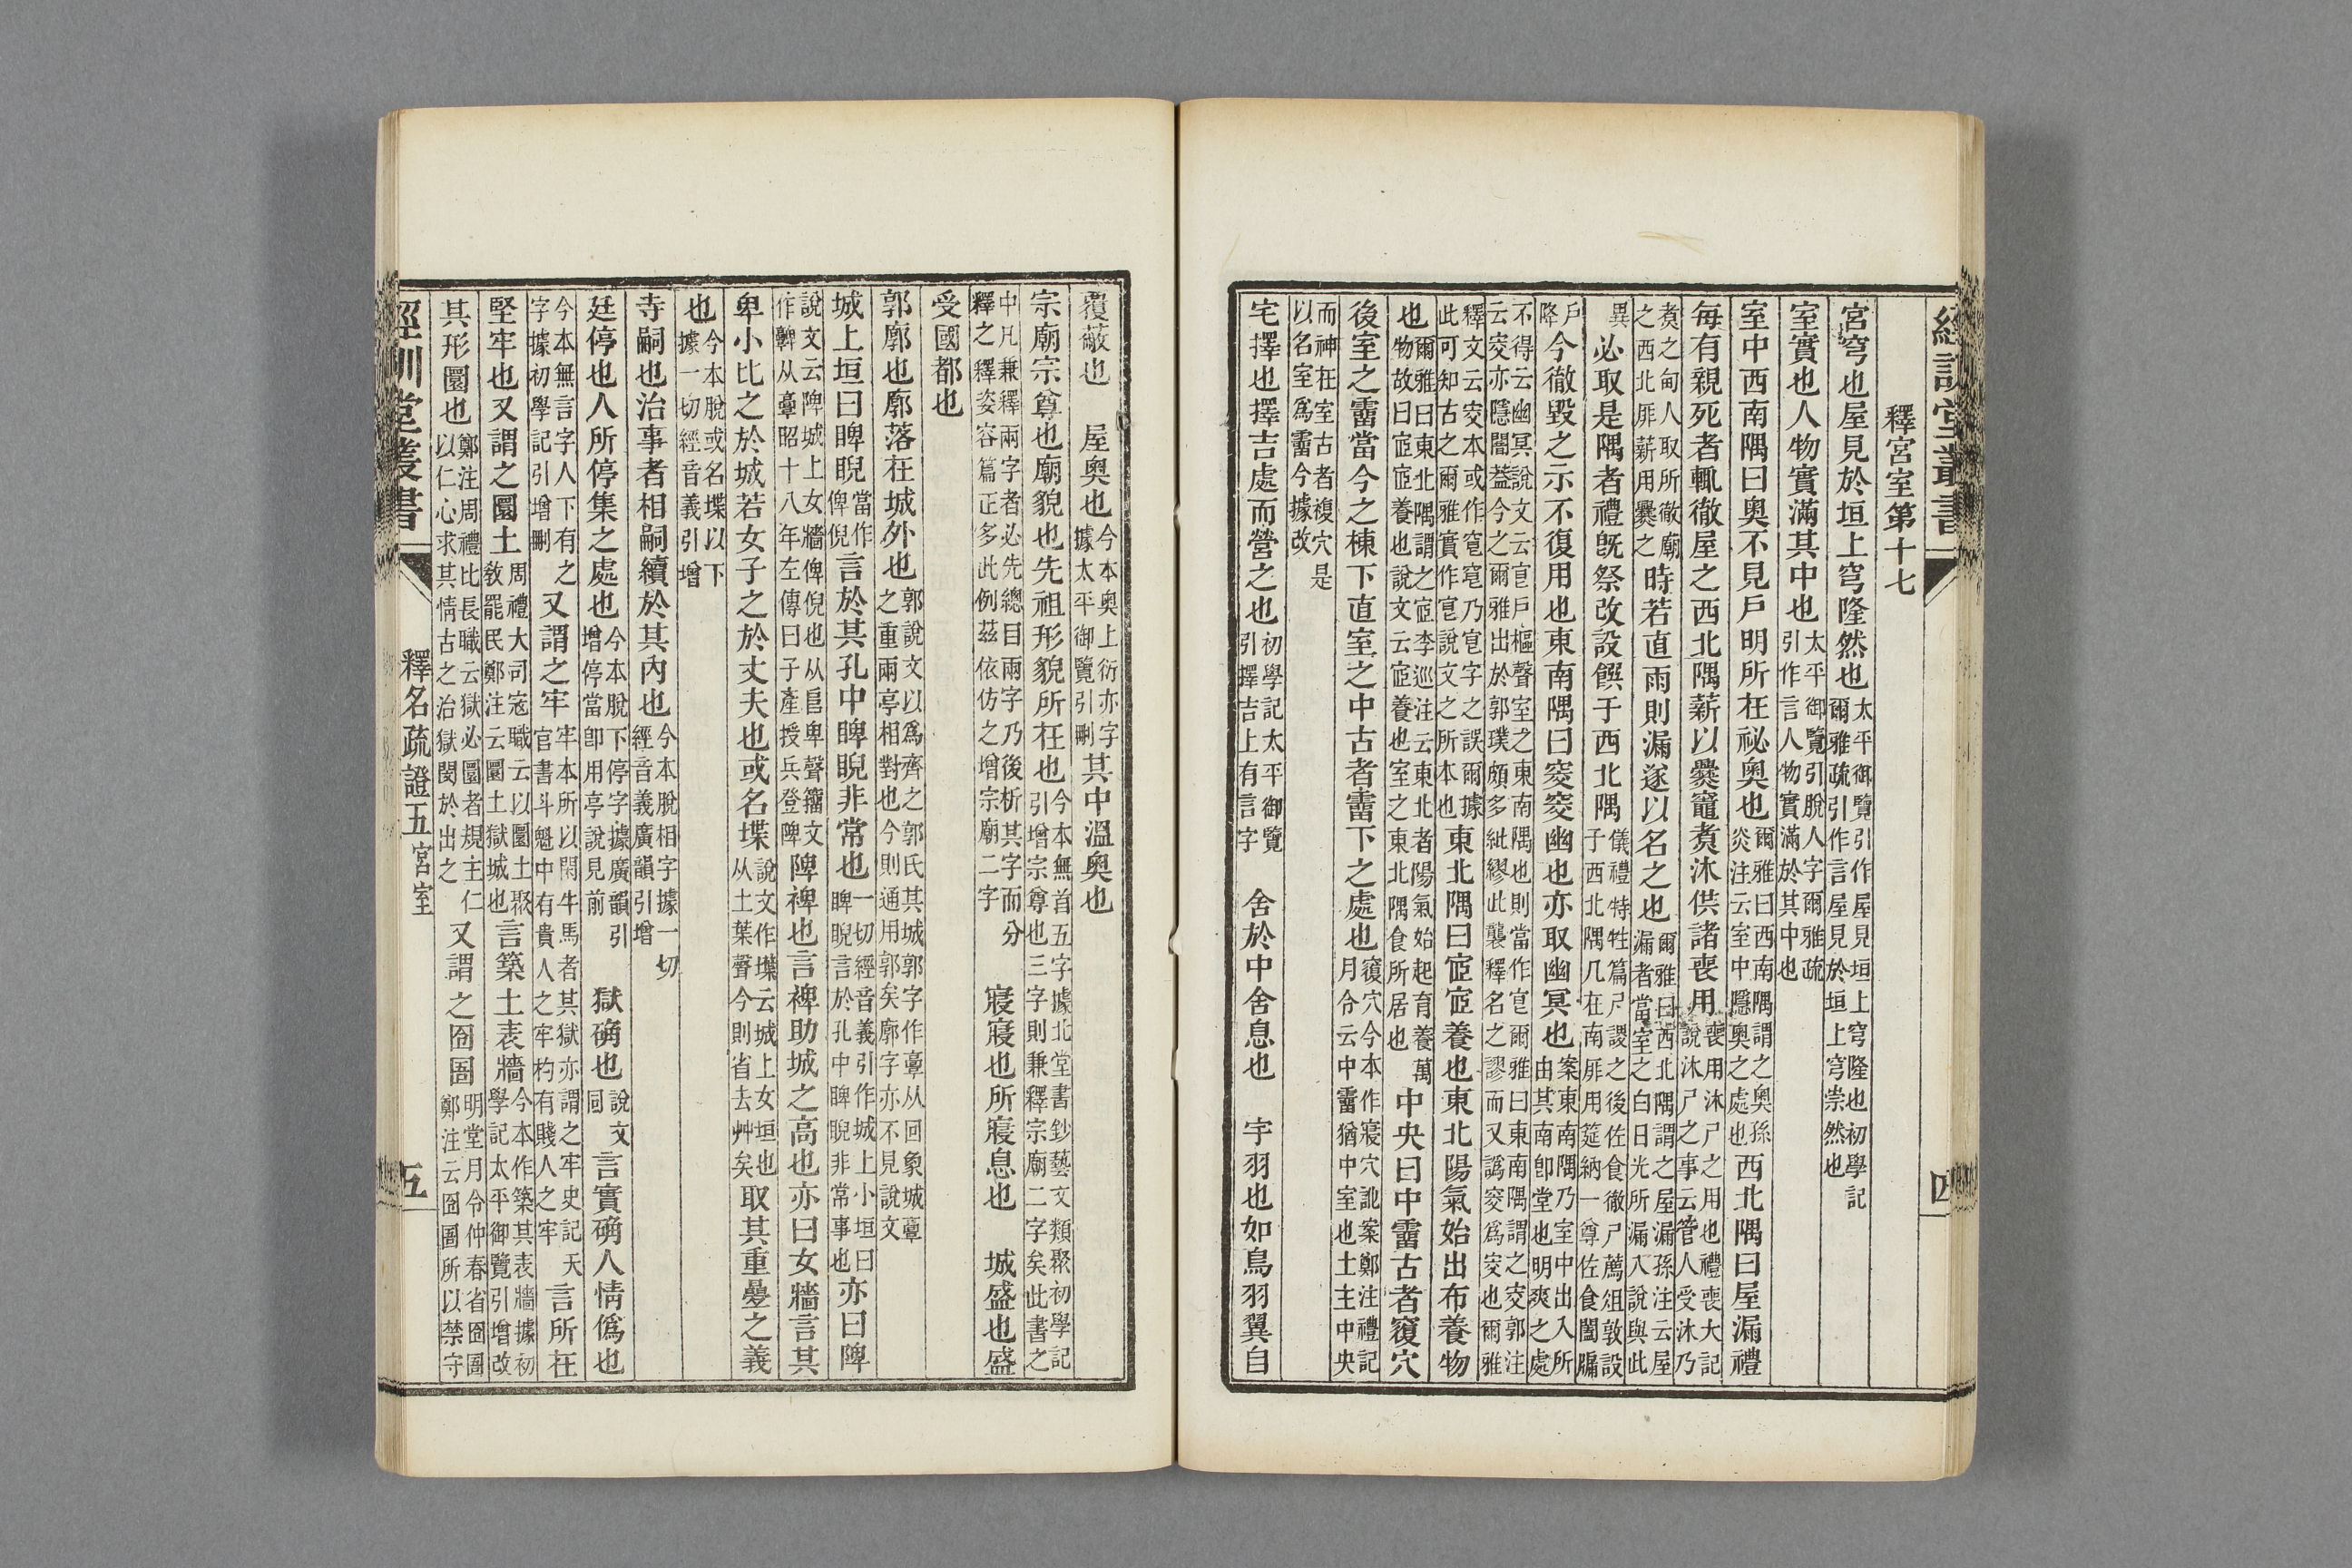 經訓堂叢書 四
釋宮室第十七
宮穹也屋見於垣上穹隆然也太平御覽引作屋見垣上穹隆也初學記爾雅疏引作言屋見於垣上穹崇然也
室實也人物實滿其中也太平御覽引脫人字爾雅疏引作言人物實滿於其中也
室中西南隅曰奧不見戶明所在祕奧也爾雅曰西南隅謂之奧孫炎注云室中隱奧之處也西北隅曰屋漏禮
每有親死者輒徹屋之西北隅薪以爨竈煑沐供諸喪用喪用沐尸之用也禮喪大記說沐尸之事云管人受沐乃
煑之甸人取所徹廟之西北厞薪用爨之時若直雨則漏遂以名之也爾雅曰西北隅謂之屋漏孫注云屋漏者當室之白日光所漏入說與此
異必取是隅者禮旣祭改設饌于西北隅儀禮特牲篇尸謖之後佐食徹尸薦俎敦設于西北隅几在南厞用筵納一尊佐食闔牖
戶降今徹毀之示不復用也東南隅曰窔窔幽也亦取幽冥也案東南隅乃室中出入所由其南卽堂也明爽之處
不得云幽冥說文云㝔戶樞聲室之東南隅也則當作㝔爾雅曰東南隅謂之窔郭注云窔亦隱闇葢今之爾雅出於郭璞頗多紕繆此襲釋名之謬而又譌窔爲窔也爾雅
釋文云窔本或作窀窀乃㝔字之誤爾據此可知古之爾雅實作㝔說文之所本也東北隅曰宧宧養也東北陽氣始出布養物
也爾雅曰東北隅謂之宧李巡注云東北者陽氣始起育養萬物故曰宧宧養也說文云宧養也室之東北隅食所居也中央曰中霤古者寢穴
後室之霤當今之棟下直室之中古者霤下之處也寢穴今本作寢穴訛案鄭注禮記月令云中霤猶中室也土主中央
而神在室古者複穴是以名室爲霤今據改
宅擇也擇吉處而營之也初學記太平御覽引擇吉上有言字 舍於中舍息也 宇羽也如鳥羽翼自
覆蔽也 屋奧也今本奧上衍亦字據太平御覽引刪其中溫奧也
宗廟宗尊也廟貌也先祖形貌所在也今本無首五字據北堂書鈔藝文類聚初學記引增宗尊也三字則兼釋宗廟二字矣此書之
中凡兼釋兩字者必先總目兩字乃後析其字而分釋之釋姿容篇正多此例茲依仿之增宗廟二字 寢寢也所寢息也 城盛也盛
受國都也
郭廓也廓落在城外也郭說文以爲齊之郭氏其城郭字作𩫏从回象城𩫏之重兩亭相對也今則通用郭矣廓字亦不見說文
城上垣曰睥睨當作俾倪言於其孔中睥睨非常也一切經音義引作城上小垣曰睥睨言於孔中睥睨非常事也亦曰陴
說文云陴城上女牆俾倪也从𨸏卑聲籀文作𩫫从𩫏昭十八年左傳曰子產授兵登陴陴裨也言裨助城之高也亦曰女牆言其
卑小比之於城若女子之於丈夫也或名堞說文作堞云城上女垣也从土葉聲今則省去艸矣取其重疊之義
也今本脫或名堞以下據一切經音義引增
寺嗣也治事者相嗣續於其內也今本脫相字據一切經音義廣韻引增
廷停也人所停集之處也今本脫下停字據廣韻引增停當卽用亭說見前 獄确也說文同言實确人情僞也
今本無言字人下有之字據初學記引增刪又謂之牢牢本所以閑牛馬者其獄亦謂之牢史記天官書斗魁中有貴人之牢杓有賤人之牢言所在
堅牢也又謂之圜土周禮大司寇職云以圜土聚敎罷民鄭注云圜土獄城也言築土表牆今本作築其表牆據初學記太平御覽引增改
其形圜也鄭注周禮比長職云獄必圜者規主仁以仁心求其情古之治獄閔於出之又謂之囹圄明堂月令仲春省囹圄鄭注云囹圄所以禁守
經訓堂叢書 釋名疏證五宮室 五